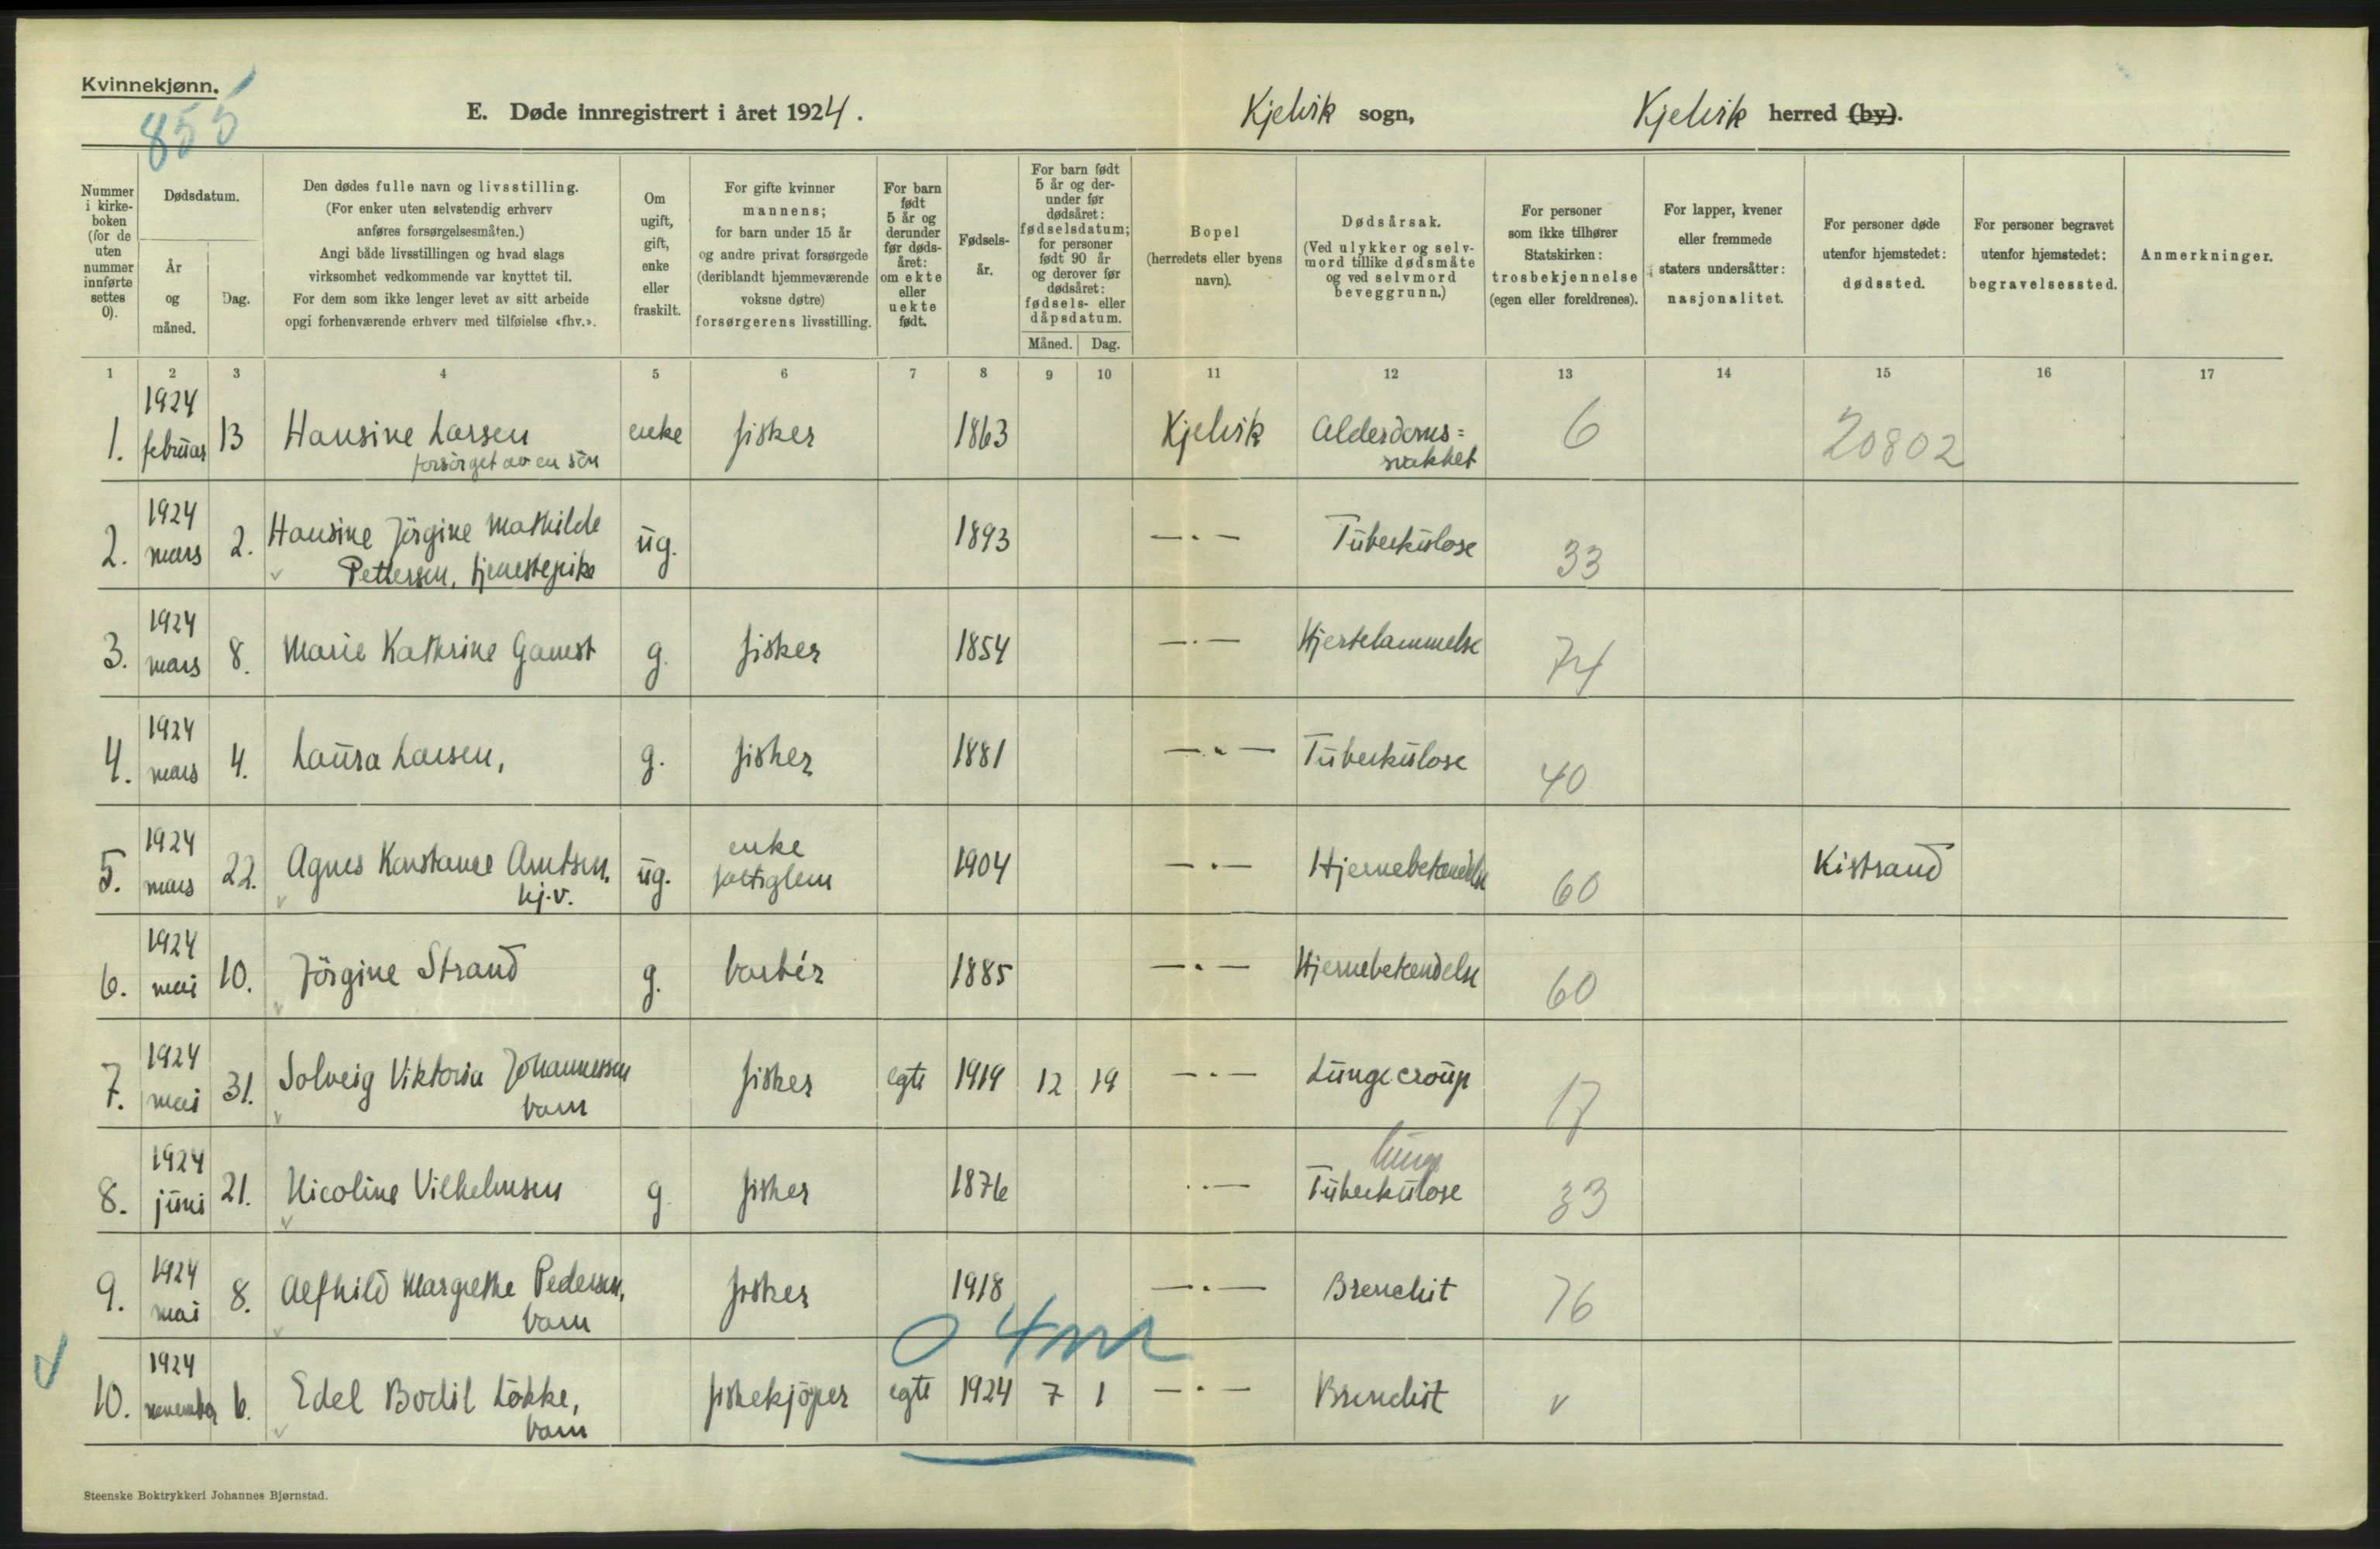 Kvinnekjønn.
855
E. Døde innregistrert i året 1924.
Kjelvik sogn,
Kjelvik herred (by).
Nummer i kirke-boken (for de uten nummer innførte settes 0).
Dødsdatum.
År og måned.
Dag.
Den dødes fulle navn og livsstilling.
(For enker uten selvstendig erhverv
anføres forsørgelsesmåten.)
Angi både livsstillingen og hvad slags
virksomhet vedkommende var knyttet til.
For dem som ikke lenger levet av sitt arbeide
opgi forhenværende erhverv med tilføielse «fhv.».
Om ugift, gift, enke eller fraskilt.
For gifte kvinner
mannens;
for barn under 15 år
og andre privat forsørgede
(deriblandt hjemmeværende
voksne døtre)
forsørgerens livsstilling.
For barn født 5 år og derunder før døds-året: om ekte eller uekte født.
Fødsels-år.
For barn født 5 år og der-under før dødsåret: fødselsdatum; for personer født 90 år og derover før dødsåret: fødsels- eller dåpsdatum.
Måned. Dag.
Bopel
(herredets eller byens
navn).
Dødsårsak.
(Ved ulykker og selv-
mord tillike dødsmåte
og ved selvmord
beveggrunn.)
For personer
som ikke tilhører
Statskirken:
trosbekjennelse
(egen eller foreldrenes).
For lapper, kvener
eller fremmede
staters undersåtter:
nasjonalitet.
For personer døde
utenfor hjemstedet:
dødssted.
For personer begravet
utenfor hjemstedet:
begravelsessted.
Anmerkninger.
1 2 3 4 5 6 7 8 9 10 11 12 13 14 15 16 17
1. 1924 februar 13 Hansine Larsen enke fisker 1863 Kjelvik Alderdoms= 6 20802
forsørget av en sön svakhet
2. 1924 mars 2. Hansine Jörgine Mathilde ug. 1893 —.— Tuberkulose 33
Pettersen, tjenestepike
3. 1924 mars 8. Marie Kathrine Gamst g. fisker 1854 —.— Hjertelammelse 74
4. 1924 mars 4. Laura Larsen, g. fisker 1881 —.— Tuberkulose 40
5. 1924 mars 22. Agnes Konstance Arntsen, ug. enke 1904 —.— Hjernebetændelse 60 Kistrand
hj.v. fattiglem
6. 1924 mai 10. Jörgine Strand g. barbér 1885 —.— Hjernebetændelse 60
7. 1924 mai 31. Solveig Viktoria Johannessen fisker egte 1919 12 19 —.— Lungecroup 17
barn
8. 1924 juni 21. Nicoline Vilhelmsen g. fisker 1876 .— lunge Tuberkulose 33
9. 1924 mai 8. Alfhild Margrethe Pedersen, fisker 1918 —.— Bronchit 76
barn
0 4m
10. 1924 november 6. Edel Bodil Lökke, fiskekjöper egte 1924 7 1 —.— Bronchit v
barn
Steenske Boktrykkeri Johannes Bjørnstad.